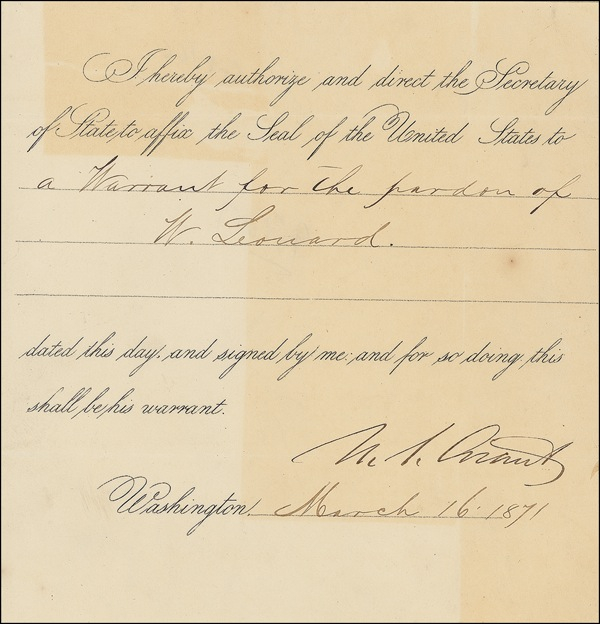 I hereby authorize and direct the Secretary
of State to affix the Seal of the United States to
a Warrant for the pardon of
W. Leonard.
dated this day, and signed by me: and for so doing this
shall be his warrant.
U. S. Grant
Washington, March 16. 1871